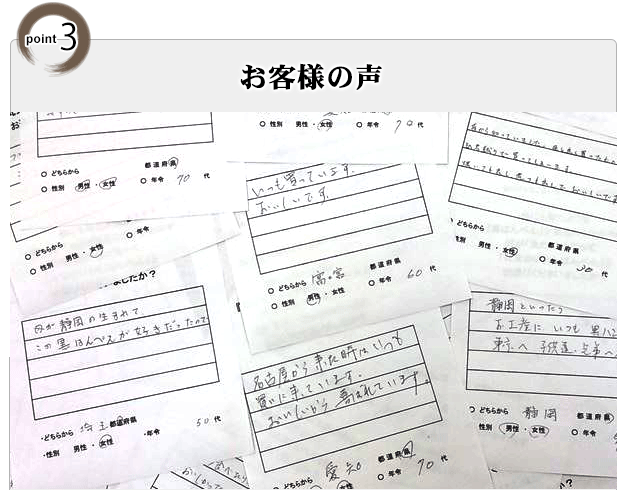 point 3
お客様の声
どちらから
都道府県
性別 男性・女性
年令 70 代
性別 男性・女性
年令 70 代
どちらから
性別 男性・女性
年令
いつも買っています。
おいしいです。
どちらから
都道府県
性別 男性・女性
年令 60 代
どちらから
都道府県
性別 男性・女性
年令 30 代
ましたか?
母が静岡の生まれで
この黒はんぺんが好きだったので
どちらから 埼玉 都道府県
性別 男性・女性
年令 50 代
名古屋から来た時はいつも
買いに来ています。
おいしいから 喜ばれています。
どちらから 愛知
都道府県
年令 70 代
静岡といったら
お土産に いつも 黒ハン
東京へ 子供達、兄弟へ
どちらから 静岡
都道府県
性別 男性・女性
年令